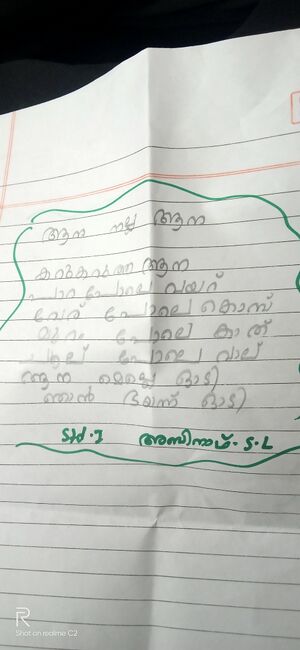 ആന നല്ല ആന
കറുകറുത്ത ആന
പാറ പോലെ വയറ്
വേര് പോലെ കൊമ്പ്
മുറം പോലെ കാത്
പോലെ വാല്
ആന മെല്ലെ ഓടി
ഞാൻ ഭയന്ന് ഓടി
Std. I അബിനാഥ്. S. L
R
Shot on realme C2